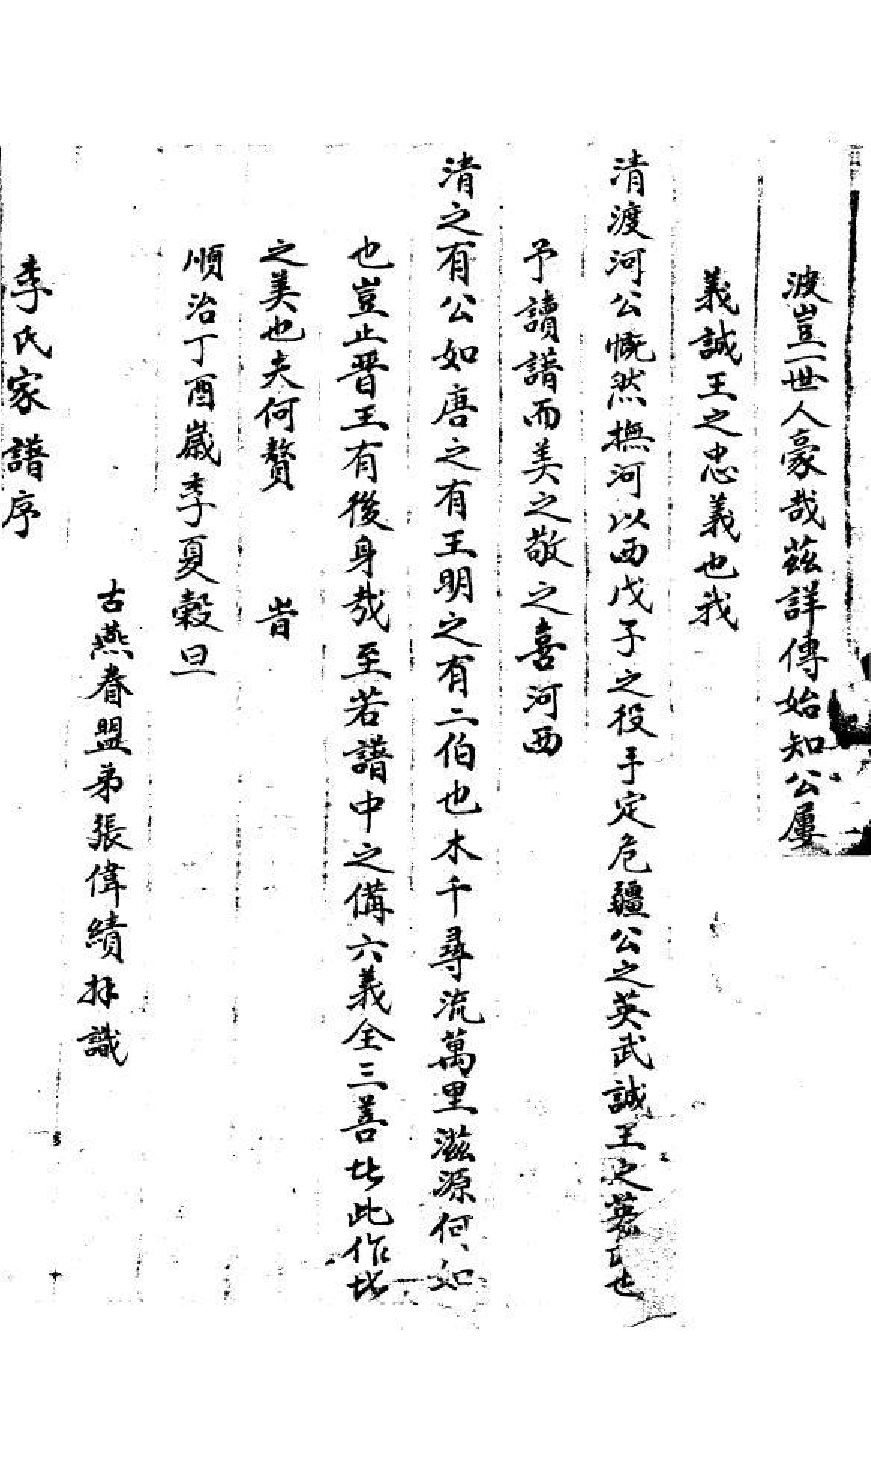 波豈一世人豪哉茲詳傳始知公屢
義誠王之忠義也我
清渡河公慨然撫河以西戊子之役手定危疆公之英武誠王之也
予讀譜而美之敬之喜河西
清之有公如唐之有王明之有二伯也木千尋流萬里滋源何如
也豈止晉王有後身哉至若譜中之備六義全三善此作
之美也夫何贅 旹
順治丁酉歲季夏穀旦
古燕眷盟弟張偉績拜識
李氏家譜序